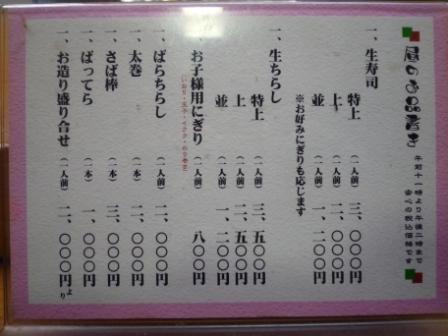 昼のお品書き
午前十一時より午後二時まで
全ての税込価格です
一、生寿司
特上 (一人前) 三、〇〇〇円
上 (一人前) 二、〇〇〇円
並 (一人前) 一、二〇〇円
※お好みにぎりも応じます
一、生ちらし
特上 (一人前) 三、五〇〇円
上 (一人前) 二、五〇〇円
並 (一人前) 一、二〇〇円
一、お子様用にぎり (一人前) 八〇〇円
一、ばらちらし (一人前) 一、〇〇〇円
一、太巻 (一本) 一、〇〇〇円
一、さば棒 (一本) 三、〇〇〇円
一、ばってら (一本) 一、〇〇〇円
一、お造り盛り合せ (一人前) 二、〇〇〇円より